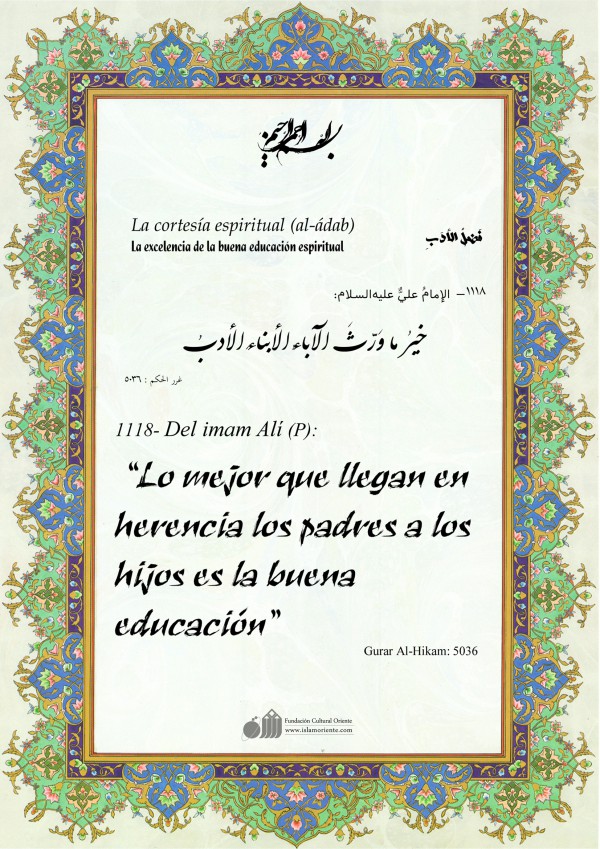 بسم الله الرحمن الرحیم
La cortesía espiritual (al-ádab)
La excelencia de la buena educación espiritual
فَضلُ الأدَبِ
۱۱۱۸– الإمامُ عليٌّ عليه‌السلام:
خَيرُ ما وَرَّثَ الآباء الأبناء الأدبُ
غرر الحكم : ۵۰۳۶
1118- Del imam Alí (P):
“Lo mejor que llegan en
herencia los padres a los
hijos es la buena
educación”
Gurar Al-Hikam: 5036
Fundación Cultural Oriente
www.islamoriente.com